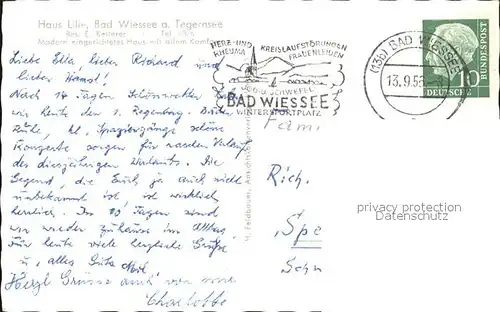 Haus Lilly, Bad Wiessee a. Tegernsee
Bes. E. Ketterer Tel.
Modern eingerichtetes Haus mit allem Komfort
HERZ- UND KREISLAUFSTÖRUNGEN
RHEUMA FRAUENLEIDEN
JOD U. SCHWEFEL
BAD WIESSEE
WINTERSPORTPLATZ
(13b) BAD WIESSEE
13.9.55
10
DEUTSCHE BUNDESPOST
Liebe Ella, lieber Roland und
lieber Hansl!
Nach 14 Tagen Schönwetter
wir heute den 1. Regentag. Baden,
Ruhe, kl. Spaziergänge schöne
Konzerte sorgen für raschen Verlauf
des diesjährigen Urlaubs. Die
Gegend, die Euch ja auch nicht
unbekannt ist, ist wirklich
herrlich. In 10 Tagen sind
wir wieder zuhause im Alltag.
Für heute viele herzliche Grüße
u. alles Gute
Herzl Grüsse auch von
Charlotte
H. Feldbauer, Ansichtskarten
Rich.
"Spe
Sch
privacy protection
Datenschutz